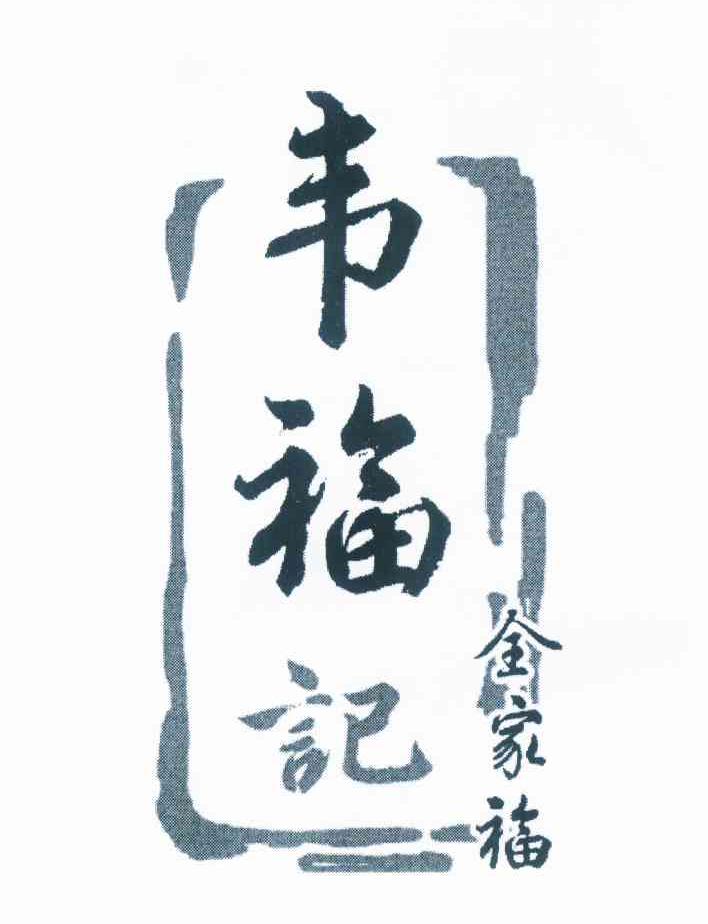 韦福記
全家福